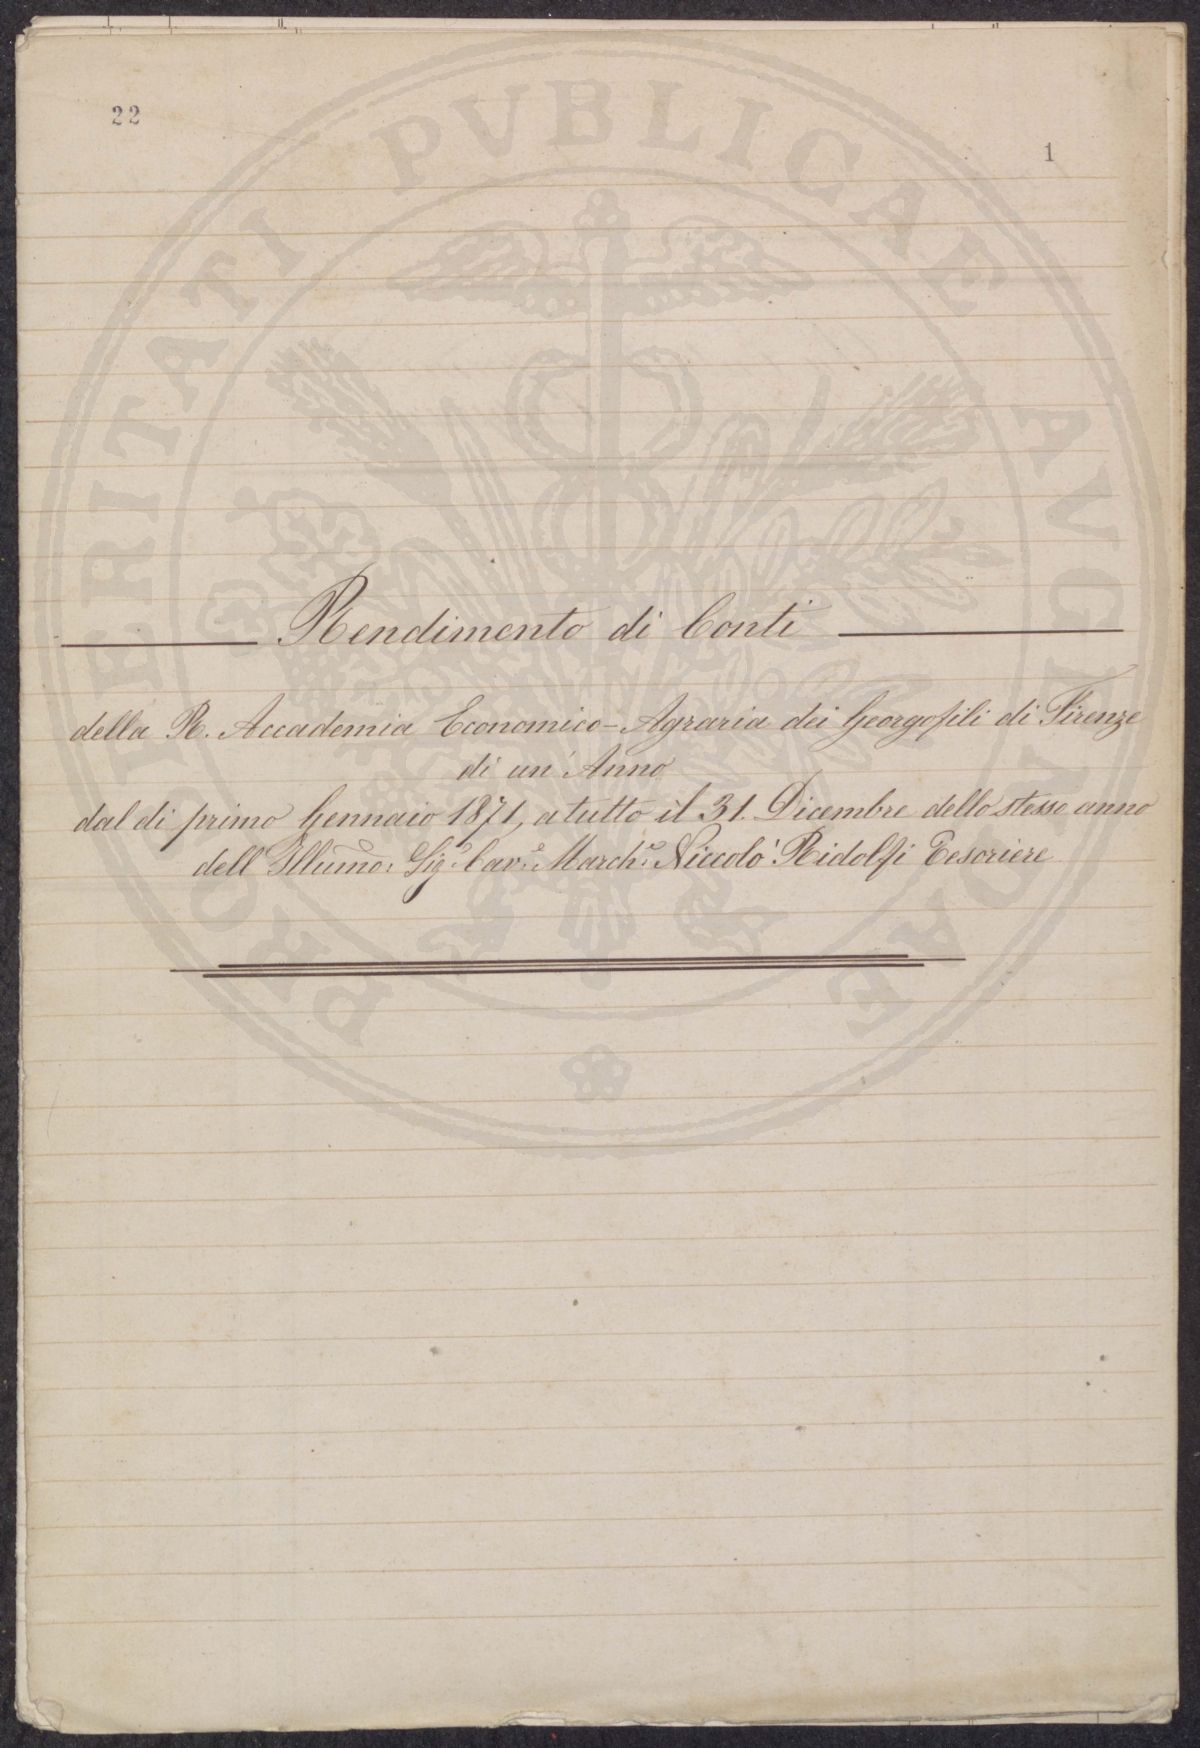 22
1
Rendimento di Conti
della R. Accademia Economico-Agraria dei Georgofili di Firenze
di un' Anno
dal di primo Gennaio 1871, a tutto il 31. Dicembre dello stesso anno
dell' Illumo: Sigre: Cave: Marche: Niccolo' Ridolfi Tesoriere
PROSPERITATI PVBLICAE AVGENDAE